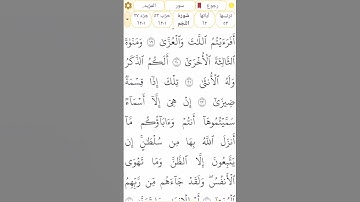 رجوع سور المزيد
ترتيبها ٥٣ آياتها ٦٢ سُورَة النَّجْم حزب ٥٣ جزء ٢٧
أَفَرَءَيْتُمُ ٱللَّٰتَ وَٱلْعُزَّىٰ ١٩ وَمَنَوٰةَ
ٱلثَّالِثَةَ ٱلْأُخْرَىٰٓ ٢٠ أَلَكُمُ ٱلذَّكَرُ
وَلَهُ ٱلْأُنثَىٰ ٢١ تِلْكَ إِذًا قِسْمَةٌ
ضِيزَىٰٓ ٢٢ إِنْ هِىَ إِلَّآ أَسْمَآءٌ
سَمَّيْتُمُوهَآ أَنتُمْ وَءَابَآؤُكُم مَّآ
أَنزَلَ ٱللَّهُ بِهَا مِن سُلْطَٰنٍ ۚ إِن
يَتَّبِعُونَ إِلَّا ٱلظَّنَّ وَمَا تَهْوَى
ٱلْأَنفُسُ ۖ وَلَقَدْ جَآءَهُم مِّن رَّبِّهِمُ